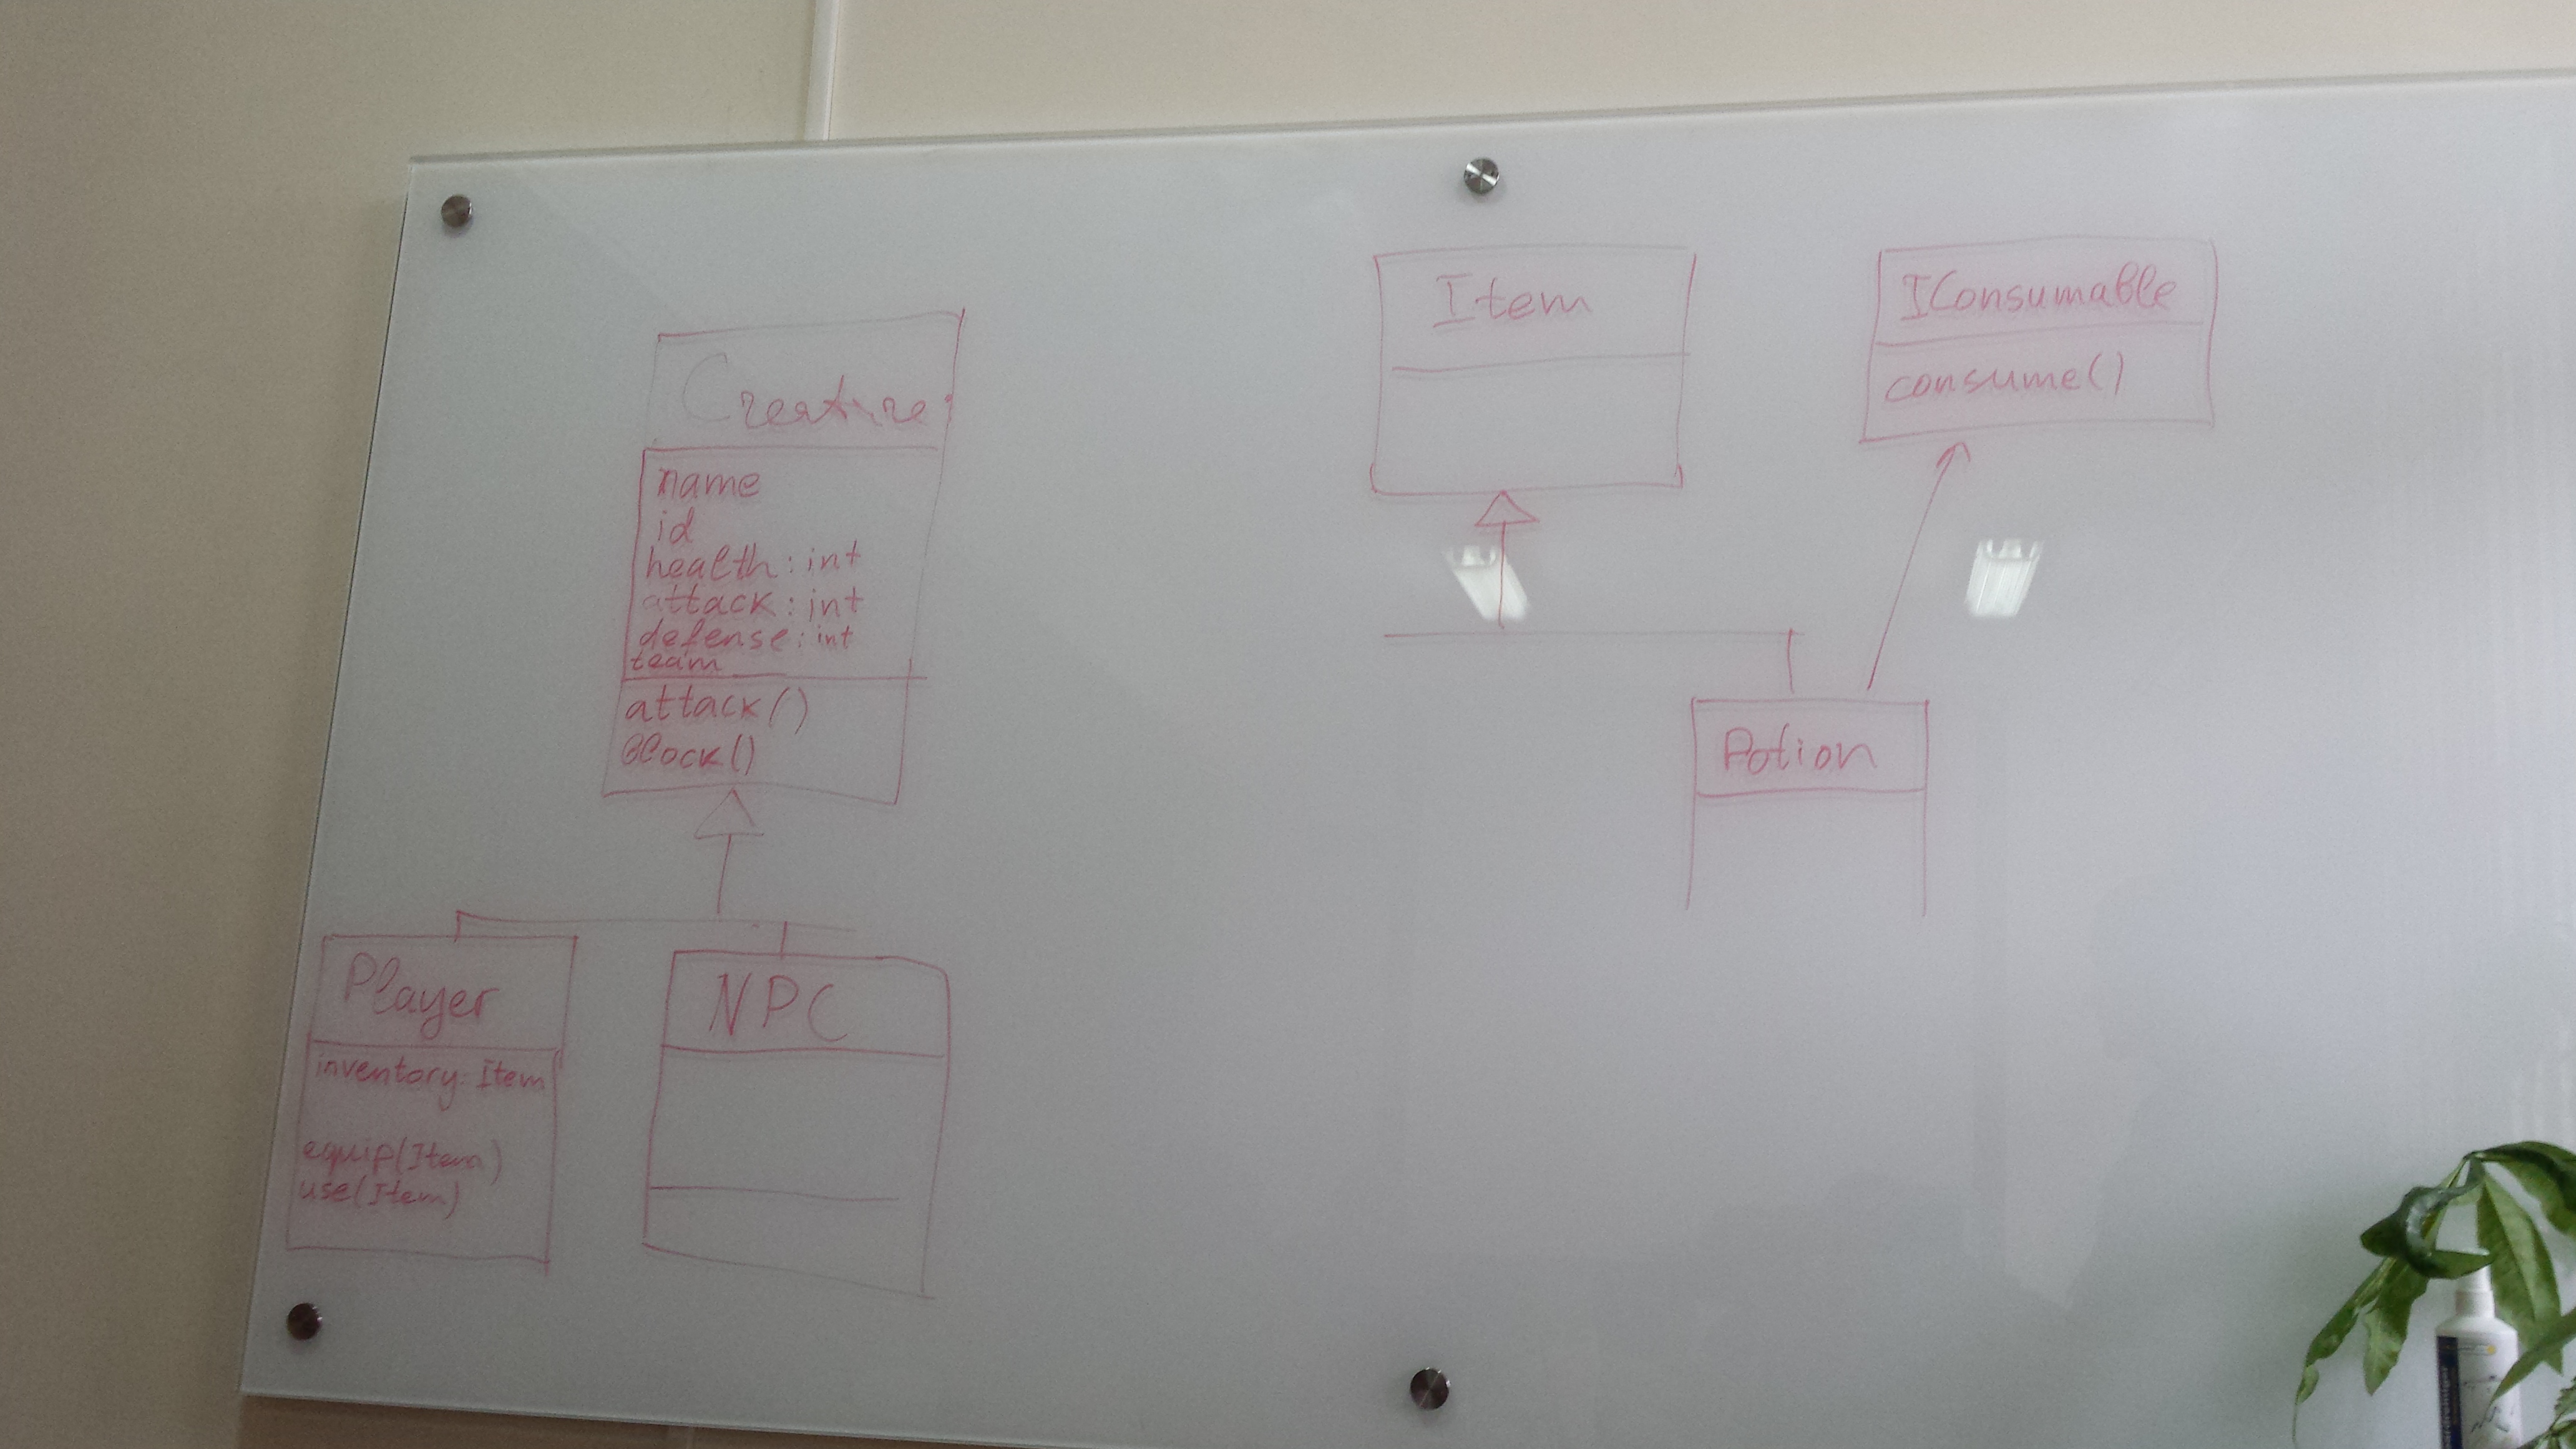 Creature
name
id
health: int
attack: int
defense: int
team
attack()
block()
Player
inventory: Item
equip(Item)
use(Item)
NPC
Item
IConsumable
consume()
Potion